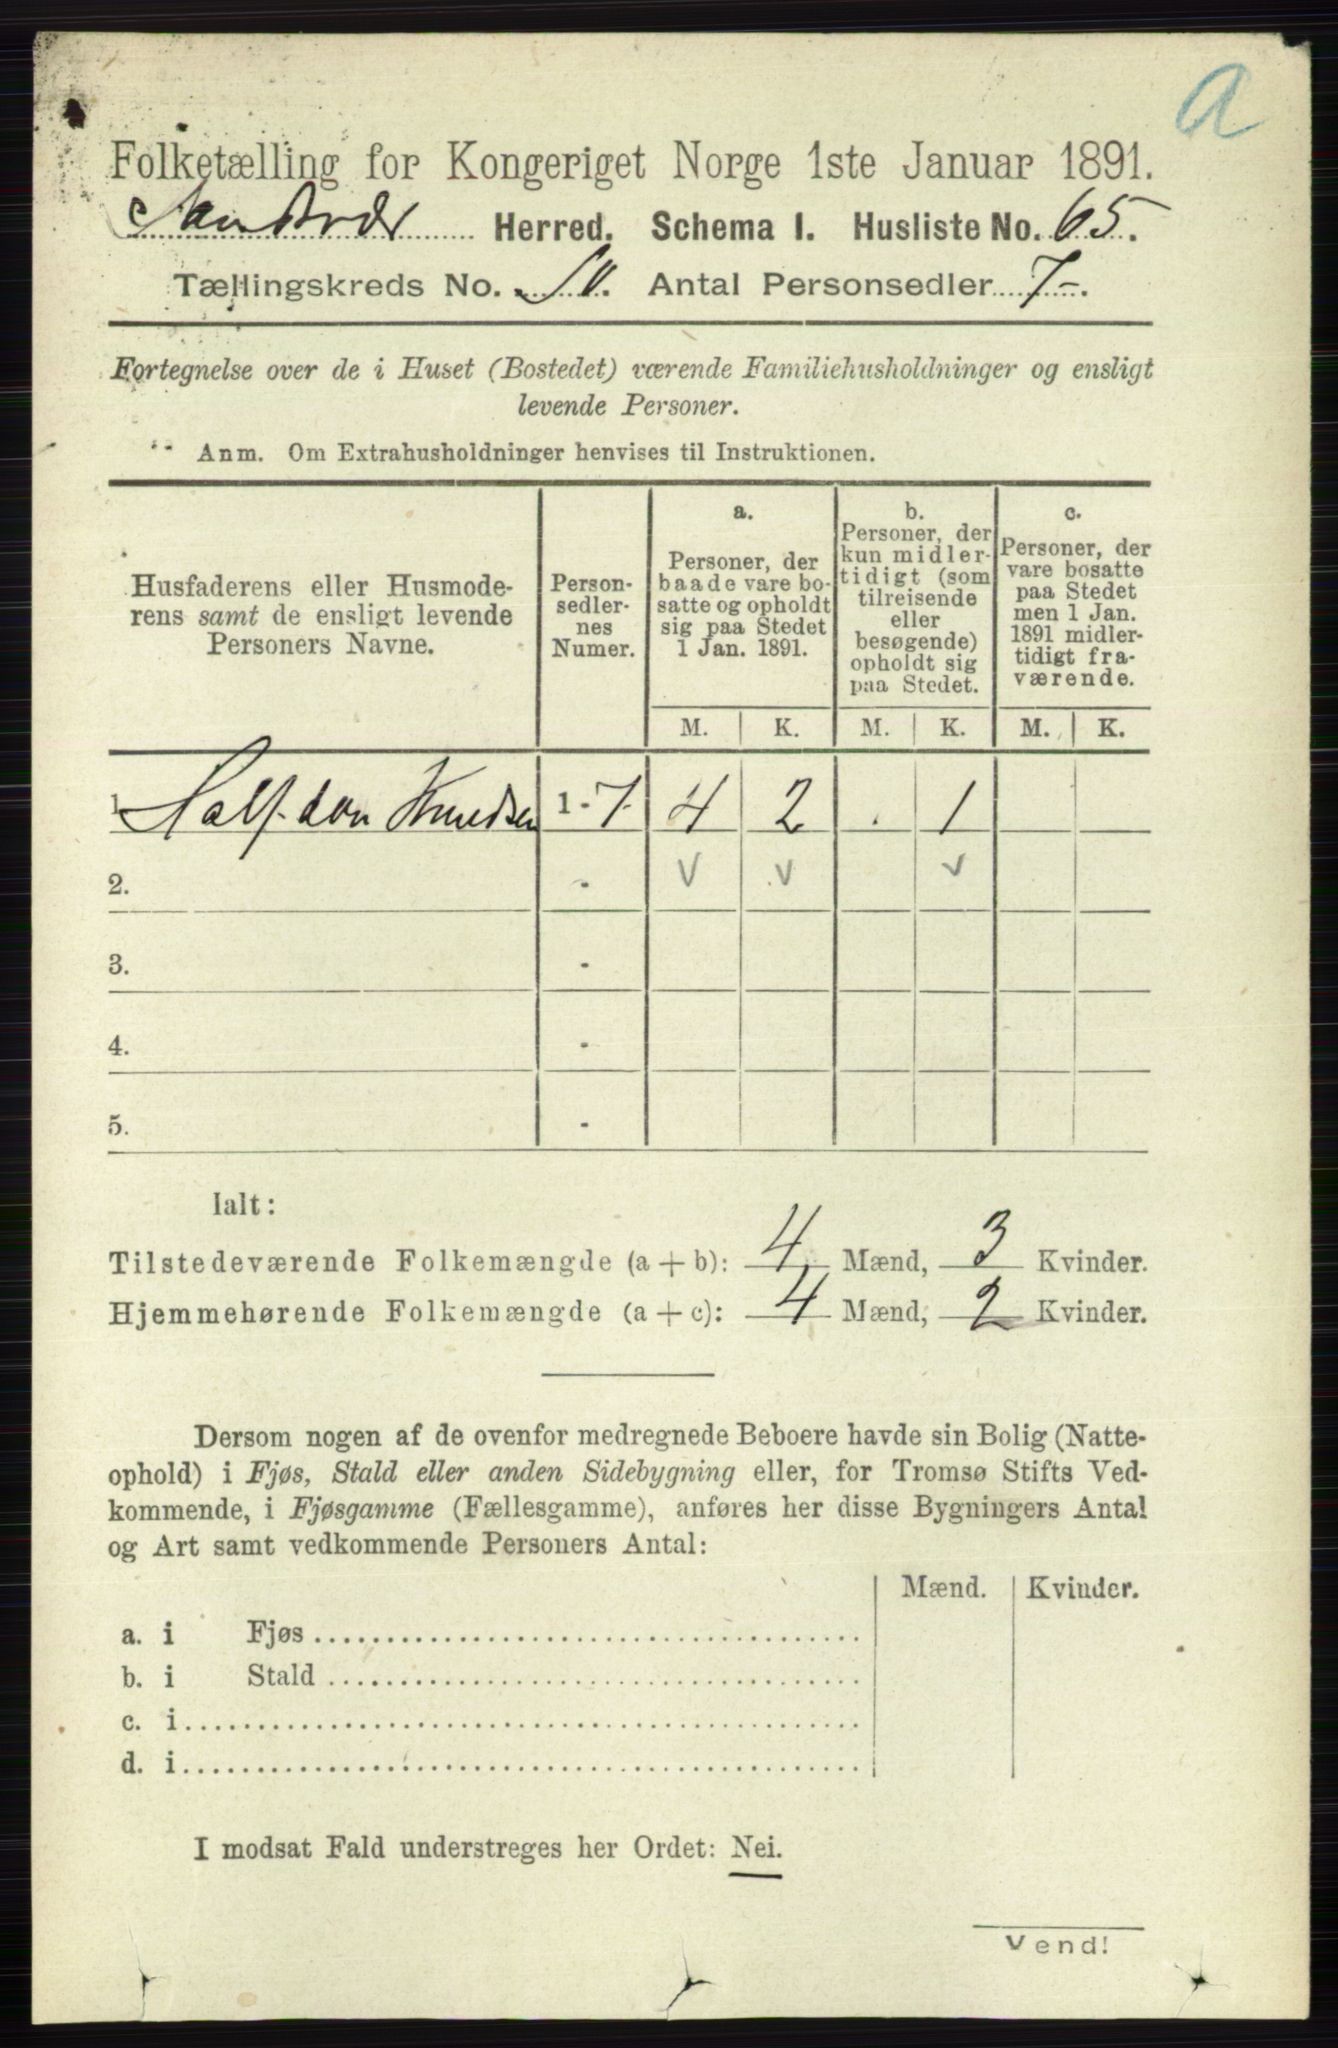 a
Folketælling for Kongeriget Norge 1ste Januar 1891.
Herred. Schema I. Husliste No. 65.
Tællingskreds No. Antal Personsedler 7-.
Fortegnelse over de i Huset (Bostedet) værende Familiehusholdninger og ensligt
levende Personer.
Anm. Om Extrahusholdninger henvises til Instruktionen.
Husfaderens eller Husmode-
rens samt de ensligt levende
Personers Navne.
Person-
sedler-
nes
Numer.
a.
Personer, der
baade vare bo-
satte og opholdt
sig paa Stedet
1 Jan. 1891.
b.
Personer, der
kun midler-
tidigt (som
tilreisende
eller
besøgende)
opholdt sig
paa Stedet.
c.
Personer, der
vare bosatte
paa Stedet
men 1 Jan.
1891 midler-
tidigt fra-
værende.
M. K. M. K. M. K.
1 Halfdan Knudsen 1-7. 4 2 . 1
2. - v v v
3. -
4. -
5. -
Ialt:
Tilstedeværende Folkemængde (a + b): 4 Mænd, 3 Kvinder.
Hjemmehørende Folkemængde (a + c): 4 Mænd, 2 Kvinder.
Dersom nogen af de ovenfor medregnede Beboere havde sin Bolig (Natte-
ophold) i Fjøs, Stald eller anden Sidebygning eller, for Tromsø Stifts Ved-
kommende, i Fjøsgamme (Fællesgamme), anføres her disse Bygningers Antal
og Art samt vedkommende Personers Antal:
Mænd. Kvinder.
a. i Fjøs
b. i Stald
c. i
d. i
I modsat Fald understreges her Ordet: Nei.
Vend!